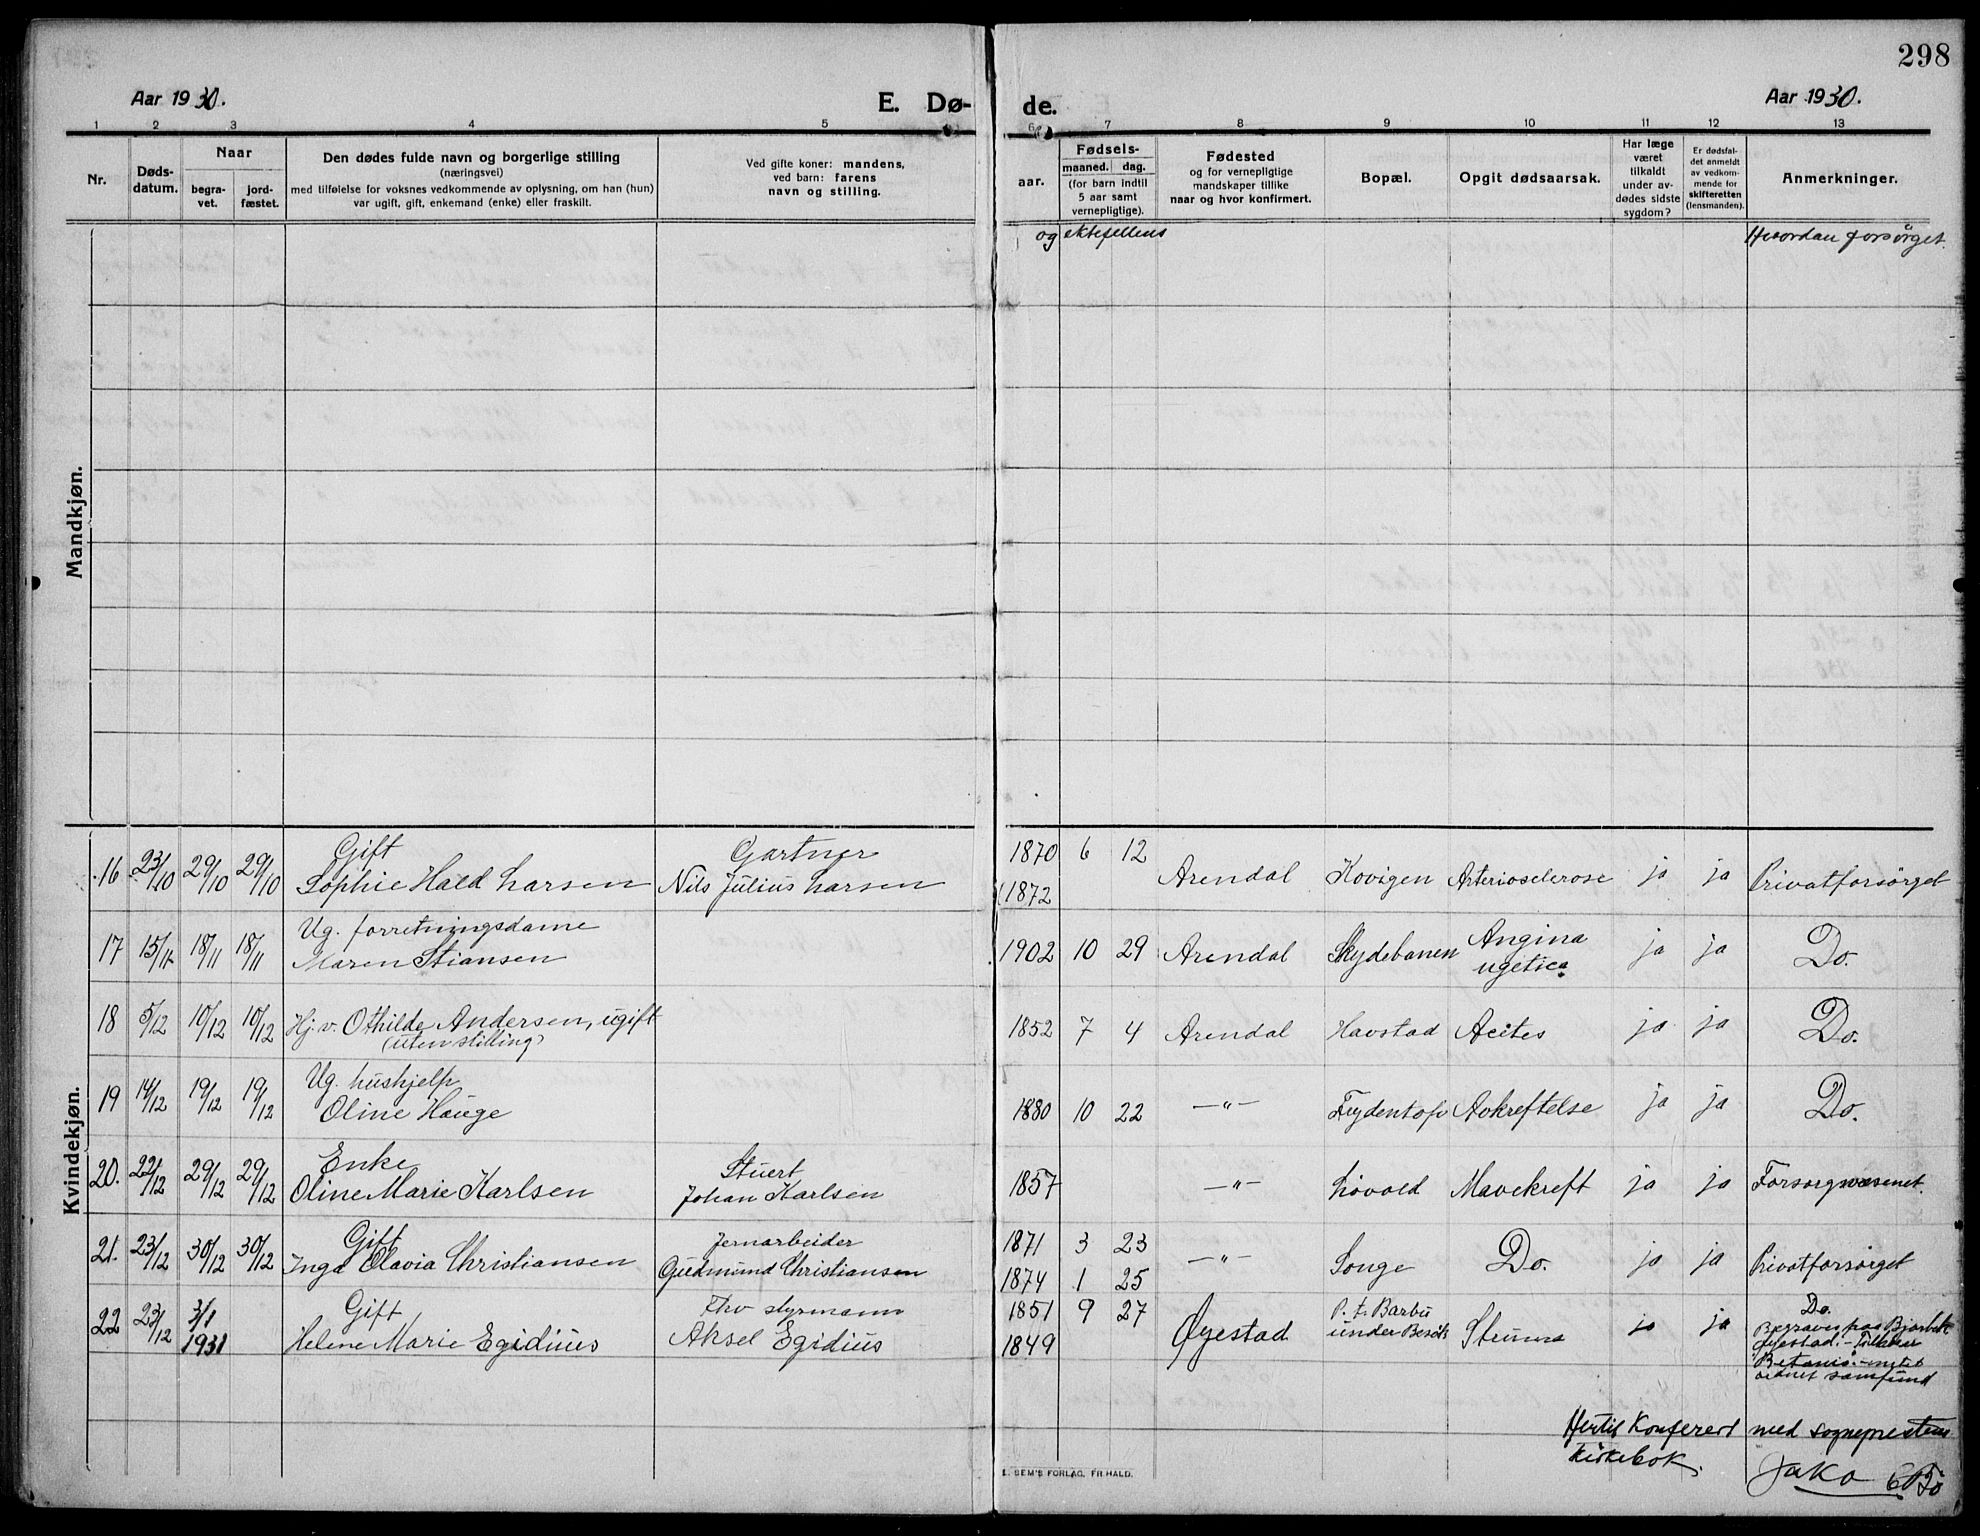 298
Aar 1930.
E. Dø-
de.
Aar 1930.
1 2 3 4 5 6 7 8 9 10 11 12 13
Nr.
Døds-
datum.
Naar
begra-
vet.
jord-
fæstet.
Den dødes fulde navn og borgerlige stilling
(næringsvei)
med tilføielse for voksnes vedkommende av oplysning, om han (hun)
var ugift, gift, enkemand (enke) eller fraskilt.
Ved gifte koner: mandens,
ved barn: farens
navn og stilling.
aar.
Fødsels-
maaned. dag.
(for barn indtil
5 aar samt
vernepligtige).
Fødested
og for vernepligtige
mandskaper tillike
naar og hvor konfirmert.
Bopæl.
Opgit dødsaarsak.
Har læge
været
tilkaldt
under av-
dødes sidste
sygdom?
Er dødsfal-
det anmeldt
av vedkom-
mende for
skifteretten
(lensmanden).
Anmerkninger.
og ektefellens
Hvordan forsørget.
Mandkjøn.
Kvindekjøn.
Gift Gartner 1870 6 12
16 23/10 29/10 29/10 Sophie Hald Larsen Nils Julius Larsen 1872 Arendal Kovigen Arteriosclerose ja ja Privatforsørget
Ug. forretningsdame
17 15/11 18/11 18/11 Maren Stiansen 1902 10 29 Arendal Skydebanen Angina ja ja Do.
18 5/12 10/12 10/12 Hj.v. Othilde Andersen, ugift 1852 7 4 Arendal Havstad Acites ja ja Do.
(uten stilling)
Ug. hushjelp
19 14/12 19/12 19/12 Oline Hauge 1880 10 22 —"— Avkreftelse ja ja Do.
Enke Stuert
20. 22/12 29/12 29/12 Oline Marie Karlsen Johan Karlsen 1857 —"— Løvold Mavekreft ja ja Forsorgsvæsenet.
Gift Jernarbeider 1871 3 23
21. 23/12 30/12 30/12 Inga Olavia Christiansen Gudmund Christiansen 1874 1 25 —"— Songe Do. ja ja Privatforsørget
Gift Fhv styrmann 1851 9 27 P. t. Barbu Do.
22 23/12 3/1 1931 Helene Marie Egidius Aksel Egidius 1849 Øyestad under Besøk Struma ja ja
Begraves paa Bjorbek
Øyestad. - Tilhører
"Betania" -
samfund
Hertil Konferert med sogneprestens
kirkebok.
E. SEM'S FORLAG, FR.HALD.